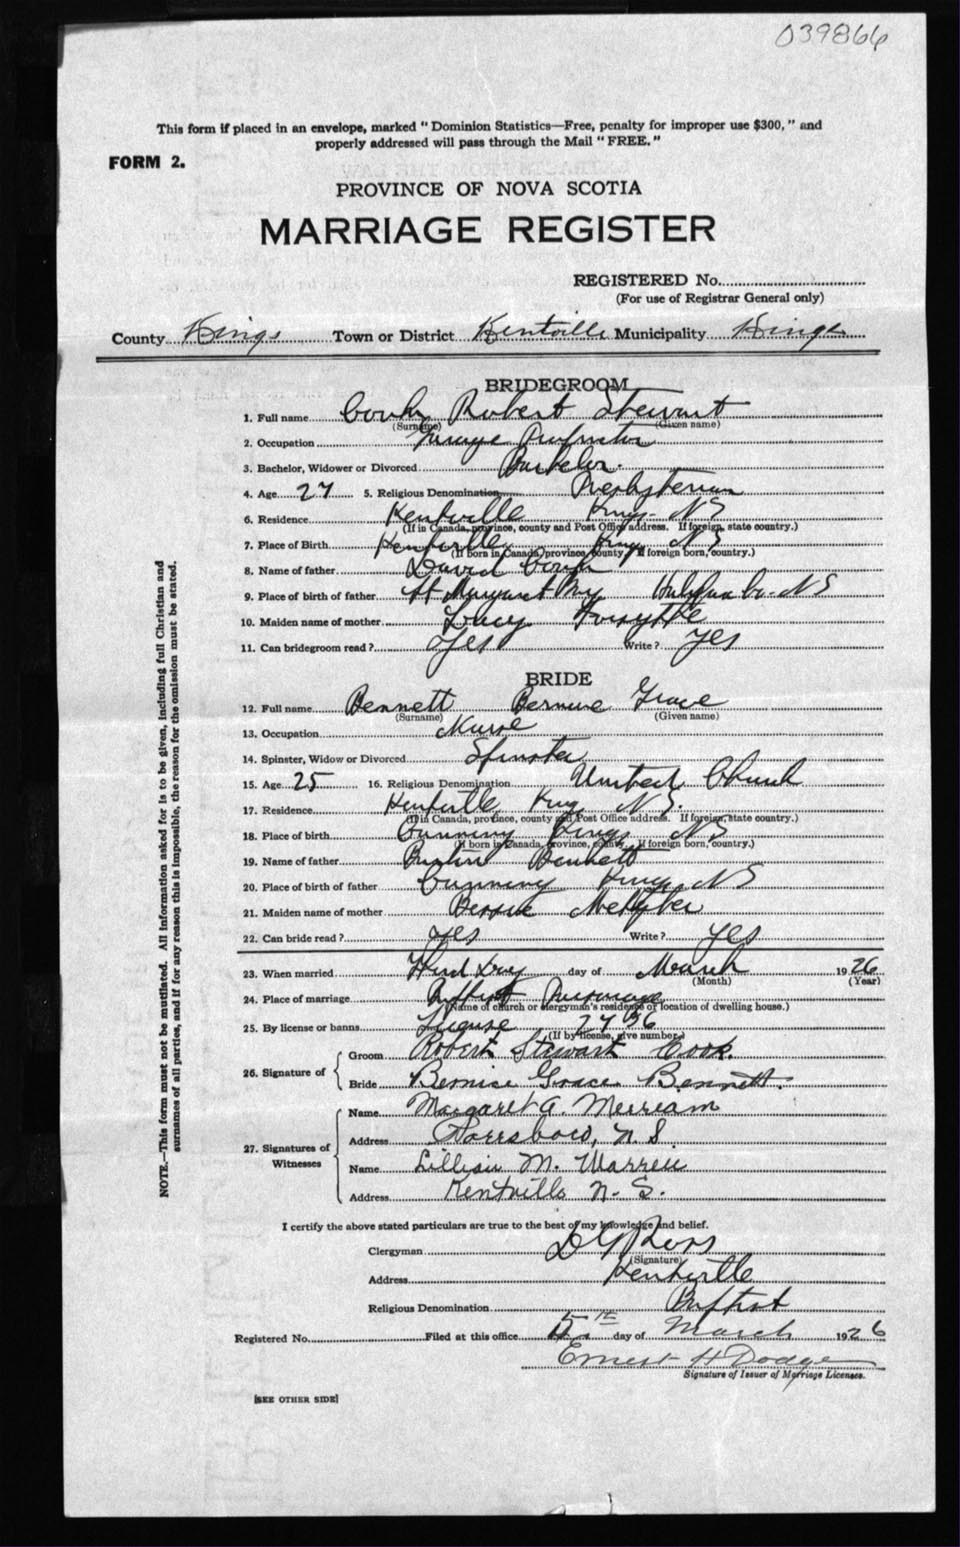 039866
This form if placed in an envelope, marked "Dominion Statistics—Free, penalty for improper use $300," and
properly addressed will pass through the Mail "FREE."
FORM 2.
PROVINCE OF NOVA SCOTIA
MARRIAGE REGISTER
REGISTERED No.
(For use of Registrar General only)
County Kings Town or District Kentville Municipality Kings
BRIDEGROOM
1. Full name Cook Robert Stewart
(Surname) (Given name)
2. Occupation Garage Proprietor
3. Bachelor, Widower or Divorced Bachelor
4. Age 27 5. Religious Denomination Presbyterian
6. Residence Kentville Kings NS
(If in Canada, province, county and Post Office address. If foreign, state country.)
7. Place of Birth Kentville Kings NS
(If born in Canada, province, county. If foreign born, country.)
8. Name of father David Cook
9. Place of birth of father St Margaret Bay Halifax Co. NS
10. Maiden name of mother Lucy Forsythe
11. Can bridegroom read? Yes Write? Yes
BRIDE
12. Full name Bennett Bernice Grace
(Surname) (Given name)
13. Occupation Nurse
14. Spinster, Widow or Divorced Spinster
15. Age 25 16. Religious Denomination United Church
17. Residence Kentville Kings N.S.
(If in Canada, province, county and Post Office address. If foreign, state country.)
18. Place of birth Canning Kings NS
(If born in Canada, province, county. If foreign born, country.)
19. Name of father Bennett
20. Place of birth of father Canning Kings NS
21. Maiden name of mother Bessie
22. Can bride read? Yes Write? Yes
23. When married Third Day day of March 1926
(Month) (Year)
24. Place of marriage Baptist Parsonage
(Name of church or clergyman's residence or location of dwelling house.)
25. By license or banns License 2736
(If by license, give number.)
26. Signature of
Groom Robert Stewart Cook.
Bride Bernice Grace Bennett.
27. Signatures of Witnesses
Name Margaret A. Merriam
Address Parrsboro, N.S.
Name Lillian M. Warren
Address Kentville N.S.
I certify the above stated particulars are true to the best of my knowledge and belief.
Clergyman
(Signature)
Address Kentville
Religious Denomination Baptist
Registered No. Filed at this office day of March 1926
Ernest H Dodge
Signature of Issuer of Marriage Licenses.
[SEE OTHER SIDE]
NOTE.—This form must not be mutilated. All information asked for is to be given, including full Christian and
surnames of all parties, and if for any reason this is impossible, the reason for the omission must be stated.